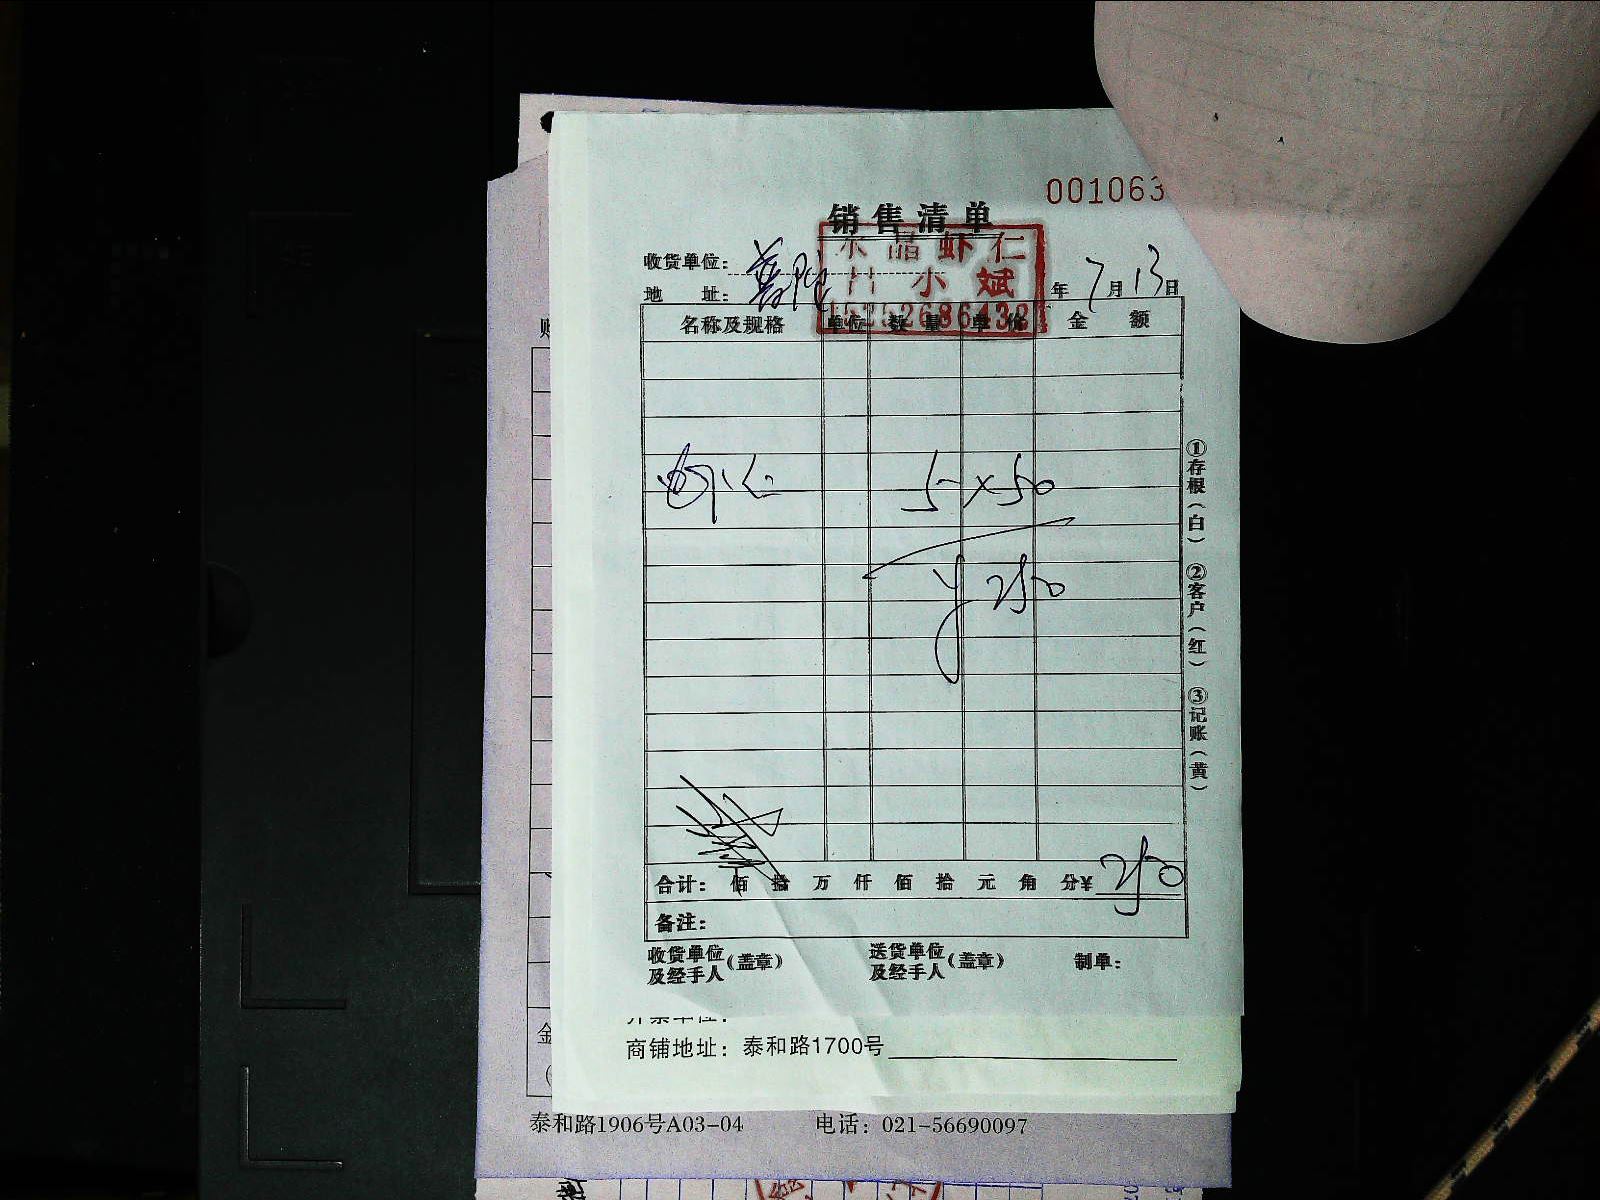 001063
销售清单
水晶虾仁
小斌
收货单位:
地 址: 年7月13日
名称及规格 单位 数量 单价 金额
虾仁 5×50
¥250
合计: 佰 拾 万 仟 佰 拾 元 角 分¥ 250
备注:
收货单位及经手人(盖章) 送货单位及经手人(盖章) 制单:
①存根(白) ②客户(红) ③记账(黄)
商铺地址: 泰和路1700号
金
泰和路1906号A03-04 电话: 021-56690097